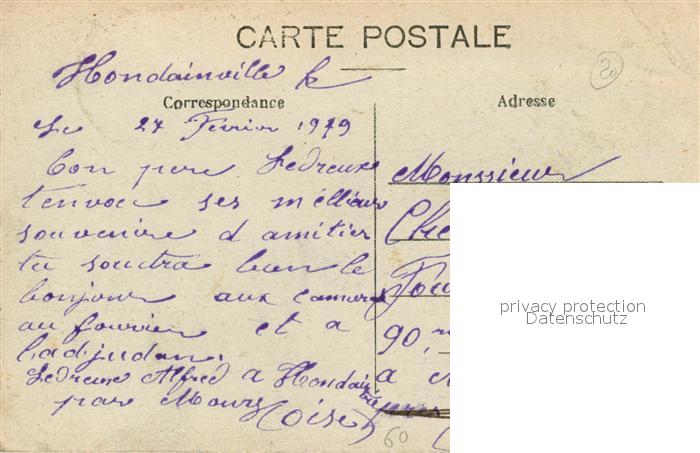 CARTE POSTALE
Hondainville le
Correspondance
Le 27 Février 1919
Ton pere Ledreux
t'envoie ses méllieur
souvenire d amitier
tu soudra bien le
bonjour aux camara
au fourrier et a
l'adjudan.
Ledreux Alfred a Hondain
par Mouy (Oise)
Adresse
Monssieur
90,
a
60
privacy protection
Datenschutz